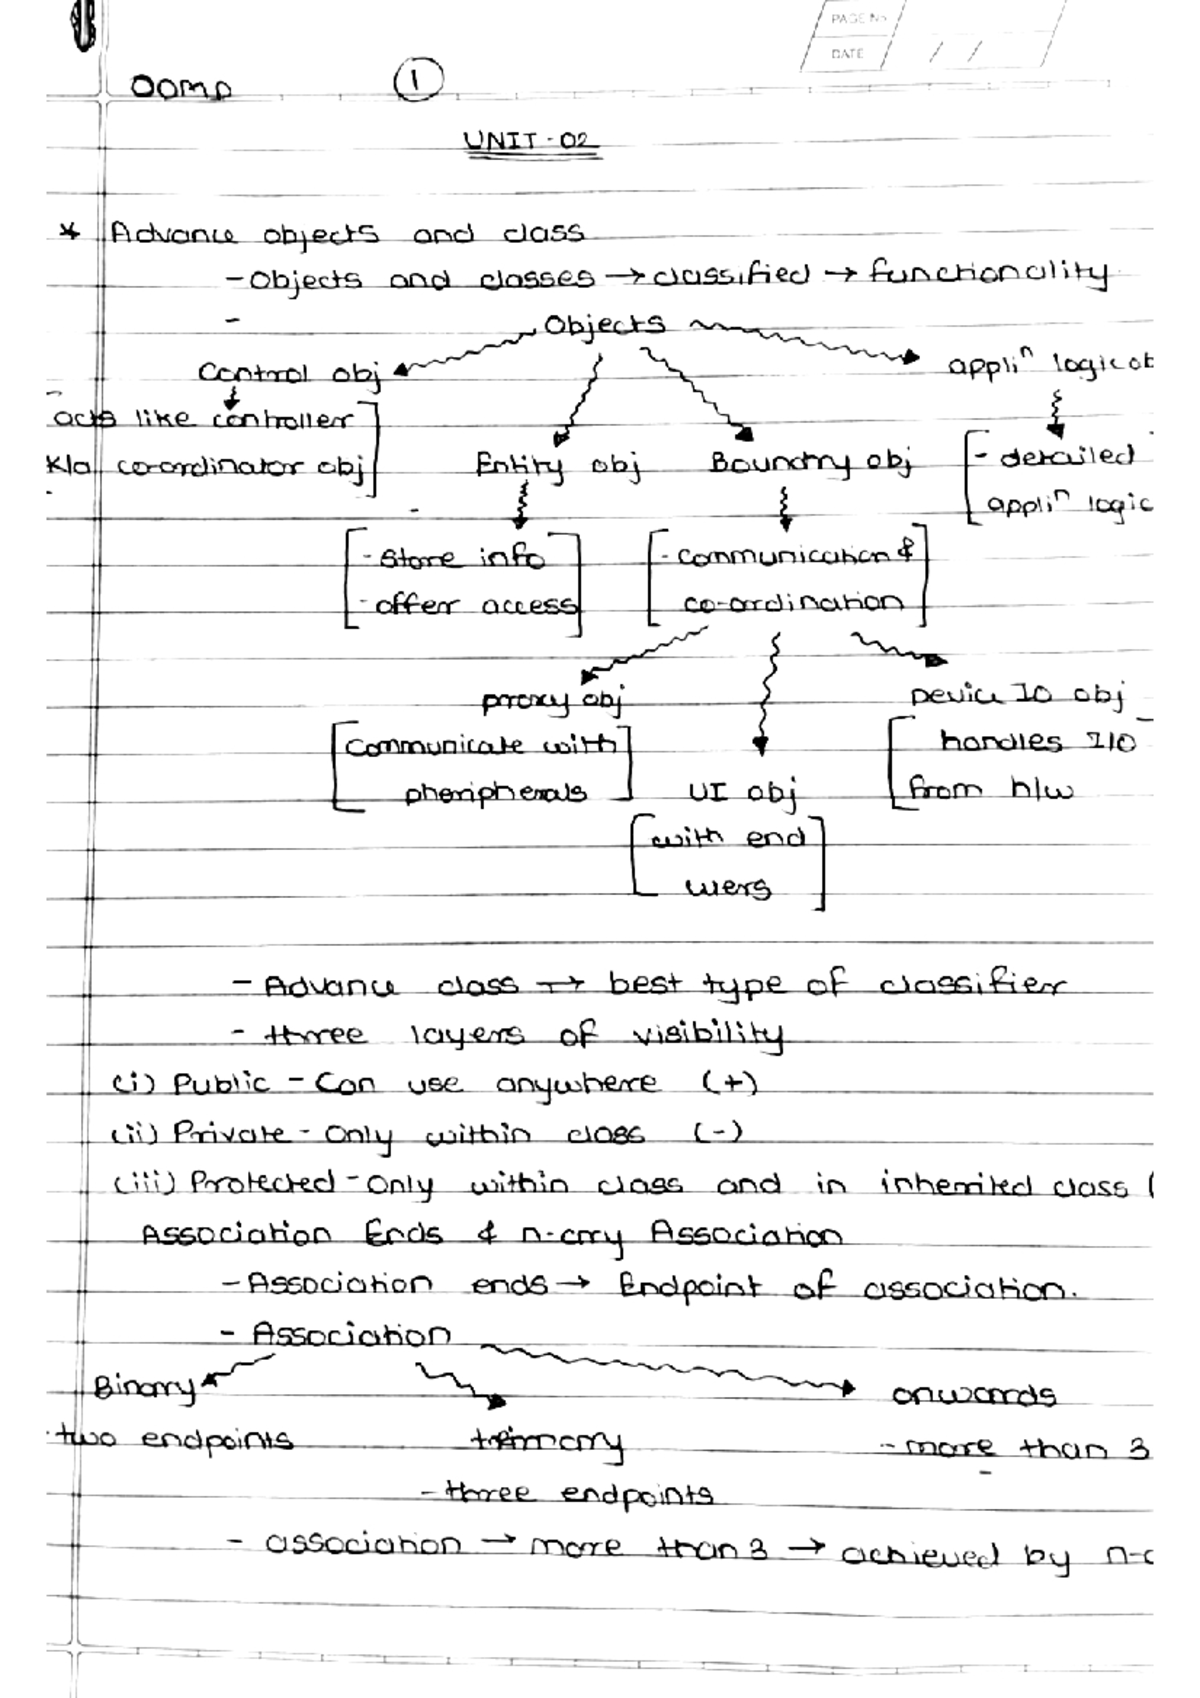 PAGE No
DATE / /
OOMD 1
UNIT-02
* Advance objects and class
- Objects and classes → classified → functionality
- Objects
Control obj appliⁿ logic ob
acts like controller
K/a co-ordinator obj Entity obj Boundry obj - detailed
appliⁿ logic
- Store info - communication &
- offer access co-ordination
proxy obj Device IO obj
communicate with handles I/O
pheripherals UI obj from h/w
with end
users
- Advance class → best type of classifier
- three layers of visibility
(i) Public - Can use anywhere (+)
(ii) Private - Only within class (-)
(iii) Protected - Only within class and in inherited class (
Association Ends & n-arry Association
- Association ends → Endpoint of association.
- Association
Binarry onwards
two endpoints - more than 3
- three endpoints
- association → more than 3 → achieved by n-a